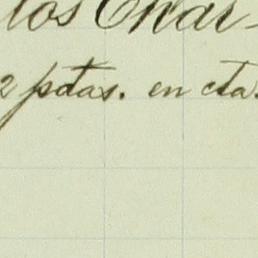 los Char-
2 ptas. en cta.